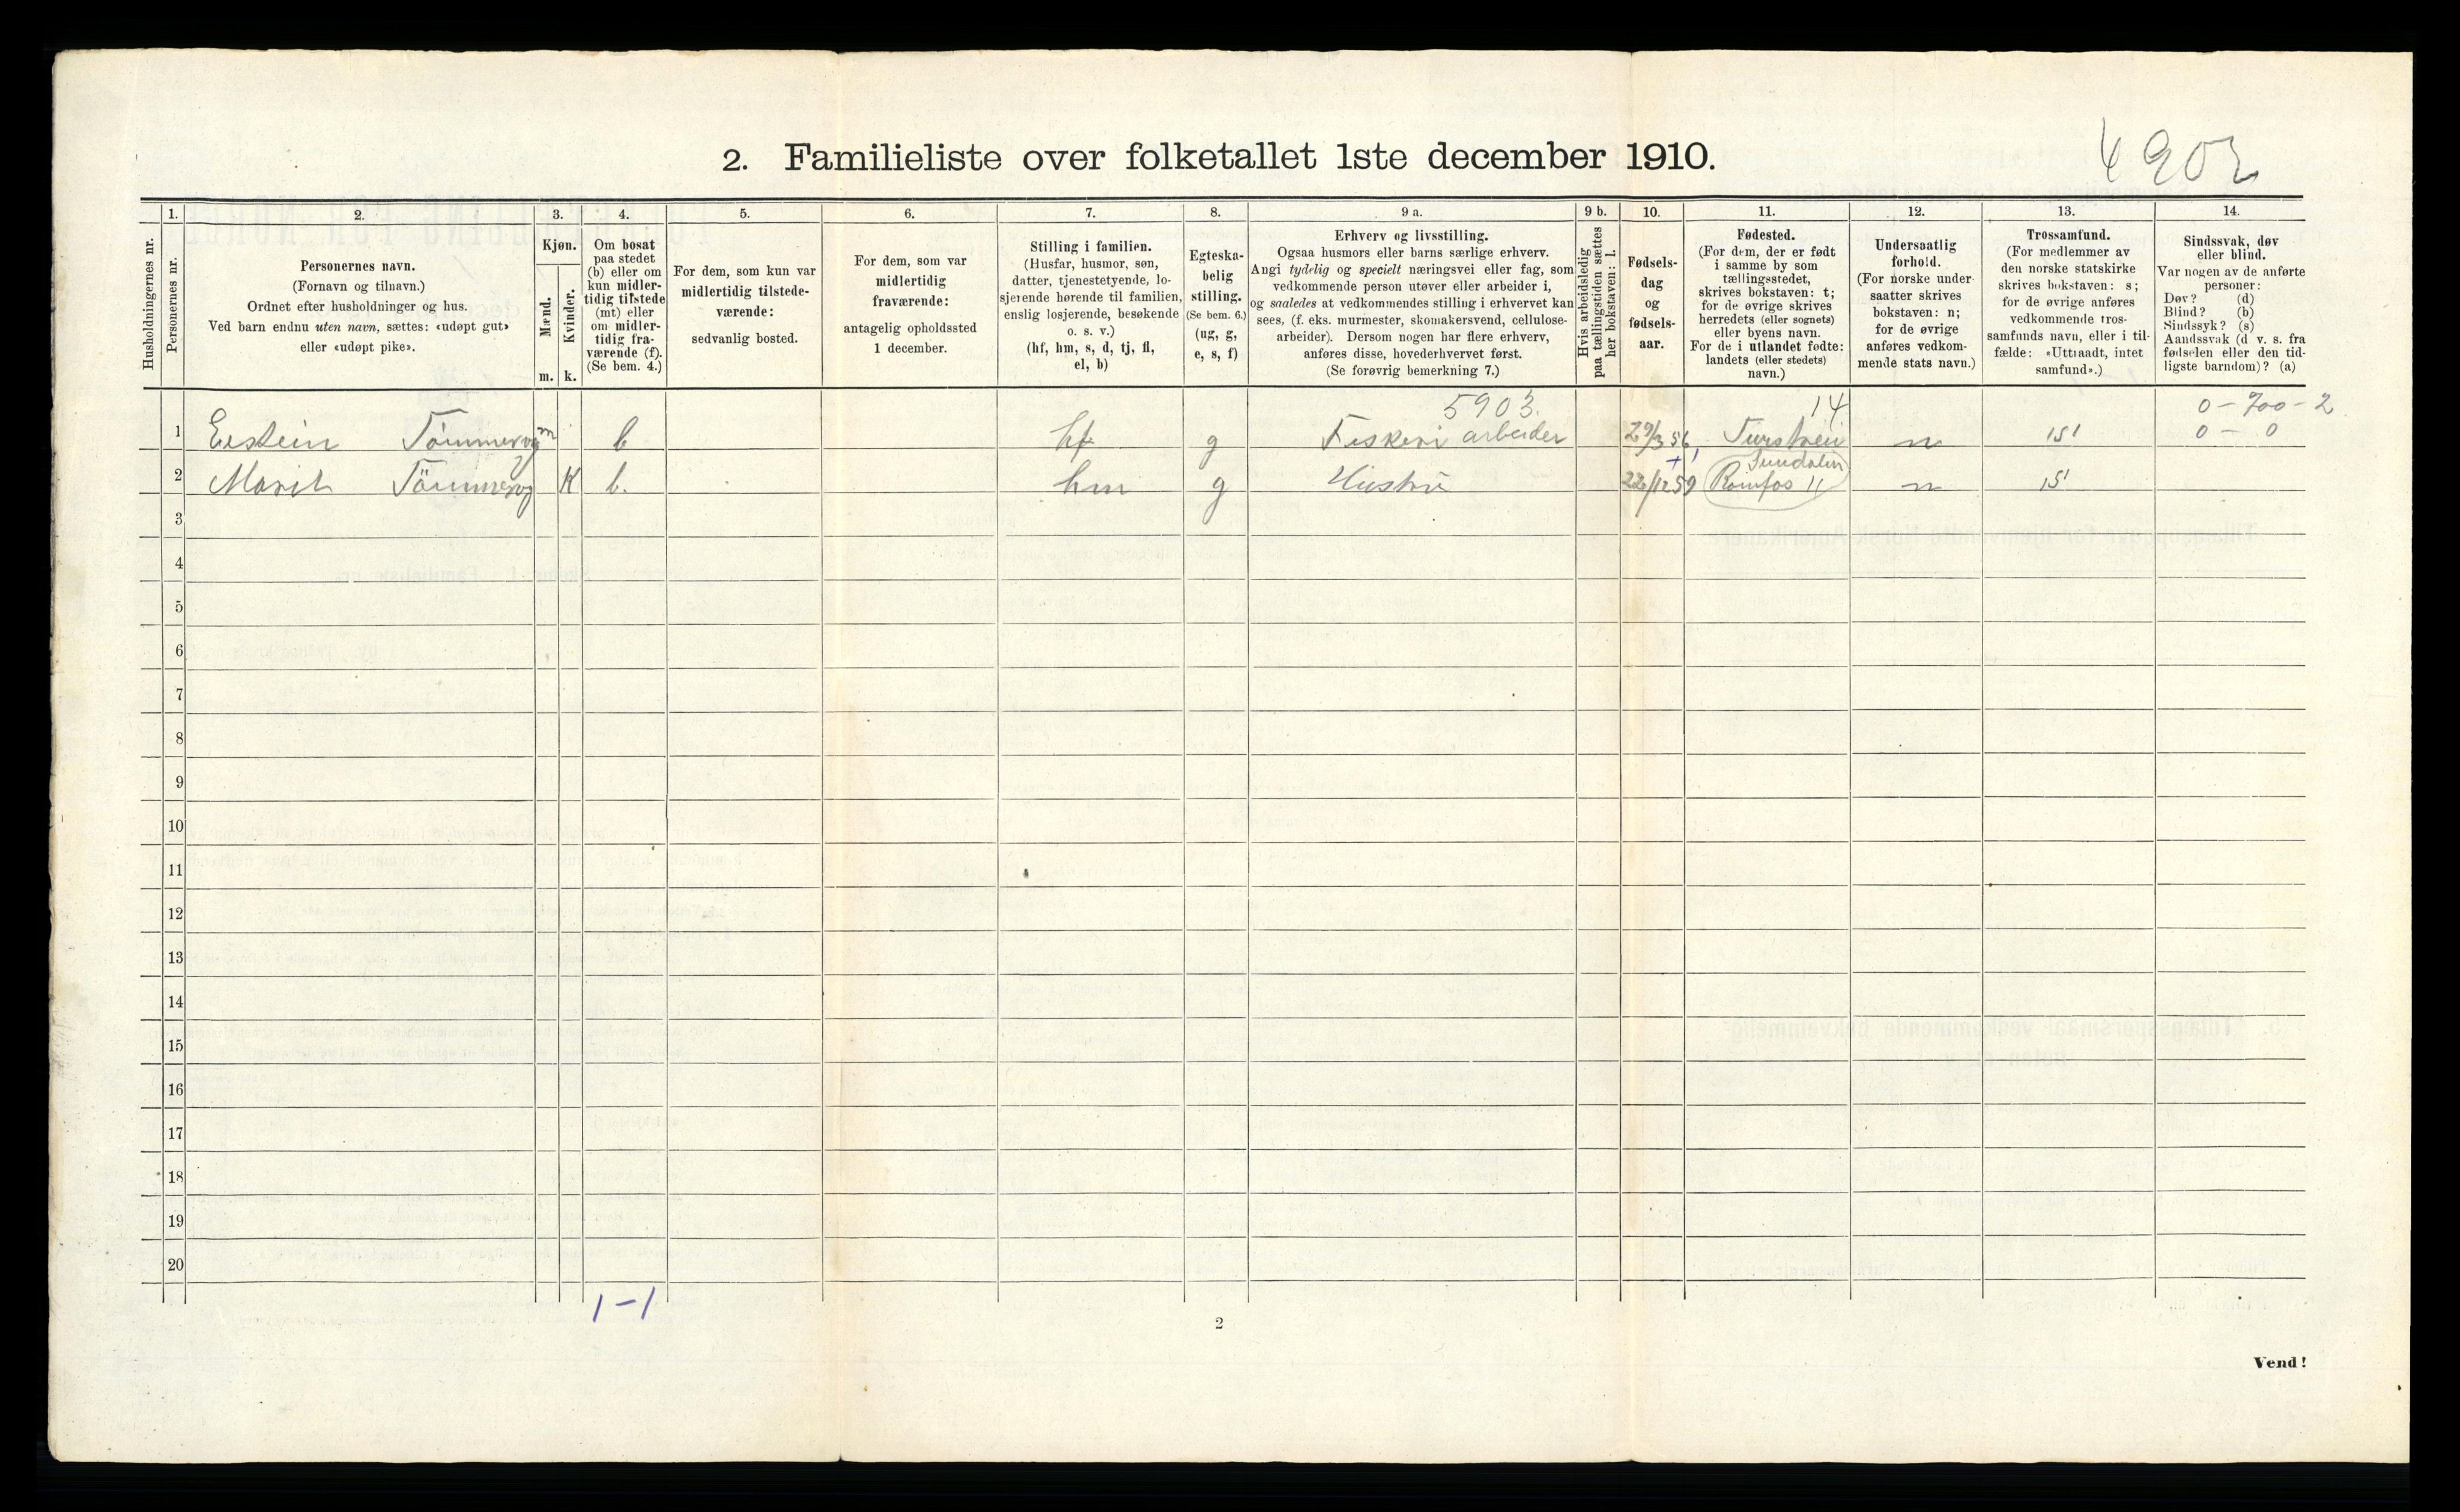 4902
2. Familieliste over folketallet 1ste december 1910.
Husholdningernes nr.
1.
Personernes nr.
2.
Personernes navn.
(Fornavn og tilnavn.)
Ordnet efter husholdninger og hus.
Ved barn endnu uten navn, sættes: «udøpt gut»
eller «udøpt pike».
3.
Kjøn.
Mænd.
Kvinder.
m. k.
4.
Om bosat
paa stedet
(b) eller om
kun midler-
tidig tilstede
(mt) eller
om midler-
tidig fra-
værende (f).
(Se bem. 4.)
5.
For dem, som kun var
midlertidig tilstede-
værende:
sedvanlig bosted.
6.
For dem, som var
midlertidig
fraværende:
antagelig opholdssted
1 december.
7.
Stilling i familien.
(Husfar, husmor, søn,
datter, tjenestetyende, lo-
sjerende hørende til familien,
enslig losjerende, besøkende
o. s. v.)
(hf, hm, s, d, tj, fl,
el, b)
8.
Egteska-
belig
stilling.
(Se bem. 6.)
(ug, g,
e, s, f)
9 a.
Erhverv og livsstilling.
Ogsaa husmors eller barns særlige erhverv.
Angi tydelig og specielt næringsvei eller fag, som
vedkommende person utøver eller arbeider i,
og saaledes at vedkommendes stilling i erhvervet kan
sees, (f. eks. murmester, skomakersvend, cellulose-
arbeider). Dersom nogen har flere erhverv,
anføres disse, hovederhvervet først.
(Se forøvrig bemerkning 7.)
9 b.
Hvis arbeidsledig
paa tællingstiden sættes
her bokstaven: l.
10.
Fødsels-
dag
og
fødsels-
aar.
11.
Fødested.
(For dem, der er født
i samme by som
tællingsstedet,
skrives bokstaven: t;
for de øvrige skrives
herredets (eller sognets)
eller byens navn.
For de i utlandet fødte:
landets (eller stedets)
navn.)
12.
Undersaatlig
forhold.
(For norske under-
saatter skrives
bokstaven: n;
for de øvrige
anføres vedkom-
mende stats navn.)
13.
Trossamfund.
(For medlemmer av
den norske statskirke
skrives bokstaven: s;
for de øvrige anføres
vedkommende tros-
samfunds navn, eller i til-
fælde: «Uttraadt, intet
samfund».)
14.
Sindssvak, døv
eller blind.
Var nogen av de anførte
personer:
Døv? (d)
Blind? (b)
Sindssyk? (s)
Aandssvak (d. v. s. fra
fødselen eller den tid-
ligste barndom)? (a)
5903. 14 0-700-2
1 Eistein Tömmervog m b hf g Fiskeri arbeider 29/3 56 n s 0 - 0
Sundalen
2 Marit Tömmervog K b. hm g Hustru 22/12 59 Romfos n s
3
4
5
6
7
8
9
10
11
12
13
14
15
16
17
18
19
20
1-1
2
Vend!